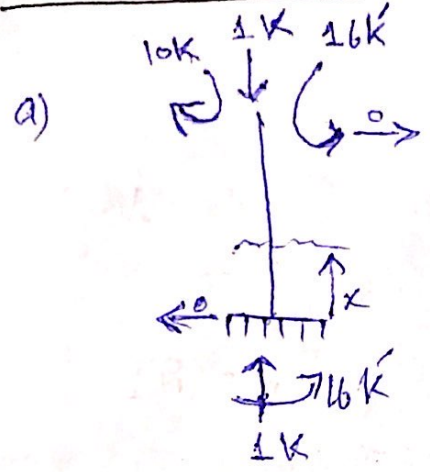 10K 1K 16K'
a)
0
x
0
16K'
1K